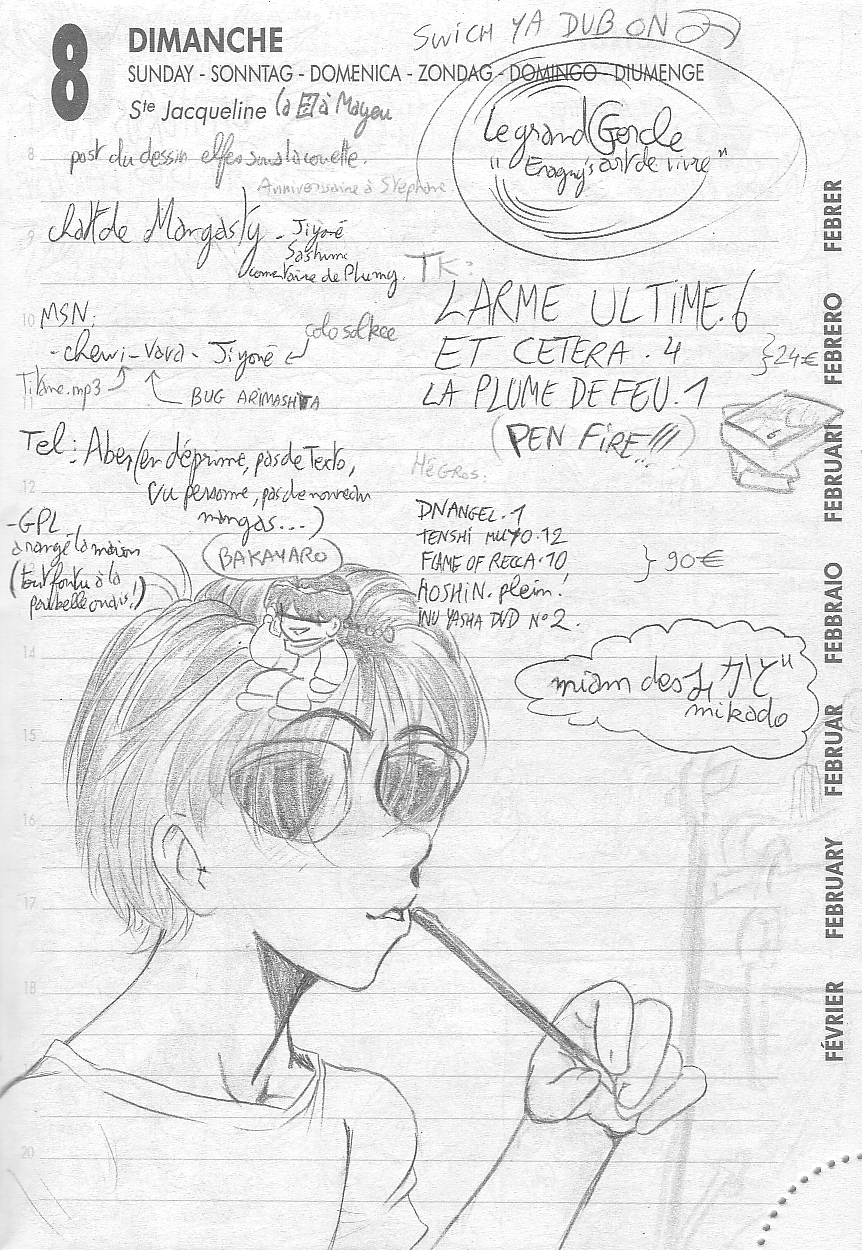 SWICH YA DUB ON
8 DIMANCHE
SUNDAY - SONNTAG - DOMENICA - ZONDAG - DOMINGO - DIUMENGE
Ste Jacqueline
Le grand Cercle
" Eragny's art de vivre "
post du dessin elfes sous la couette.
Anniversaire à Stéphane
chatt de Margasty - Jiyoné
Sashime
comentaire de Plumy.
TK:
LARME ULTIME.6
ET CETERA.4
LA PLUME DE FEU.1
} 24€
(PEN FIRE!!!)
MSN:
- chewi - vard - Jiyoné
colo solkee
Titane.mp3
BUG ARIMASHTA
Tel: Aber (en déprime, pas de Texto,
vu personne, pas de nouveau
mangas...)
HéGROS:
DNANGEL.1
TENSHI MUYO.12
FLAME OF RECCA.10
HOSHIN. plein!
INU YASHA DVD N°2.
} 90€
- GPL
a rangé la maison
(tout foutu à la
poubelle ondis!)
BAKAYARO
miam des みかど"
mikado
8
9
10
11
12
14
15
16
17
18
20
FEBRER
FEBRERO
FEBRUARI
FEBBRAIO
FEBRUAR
FEBRUARY
FÉVRIER